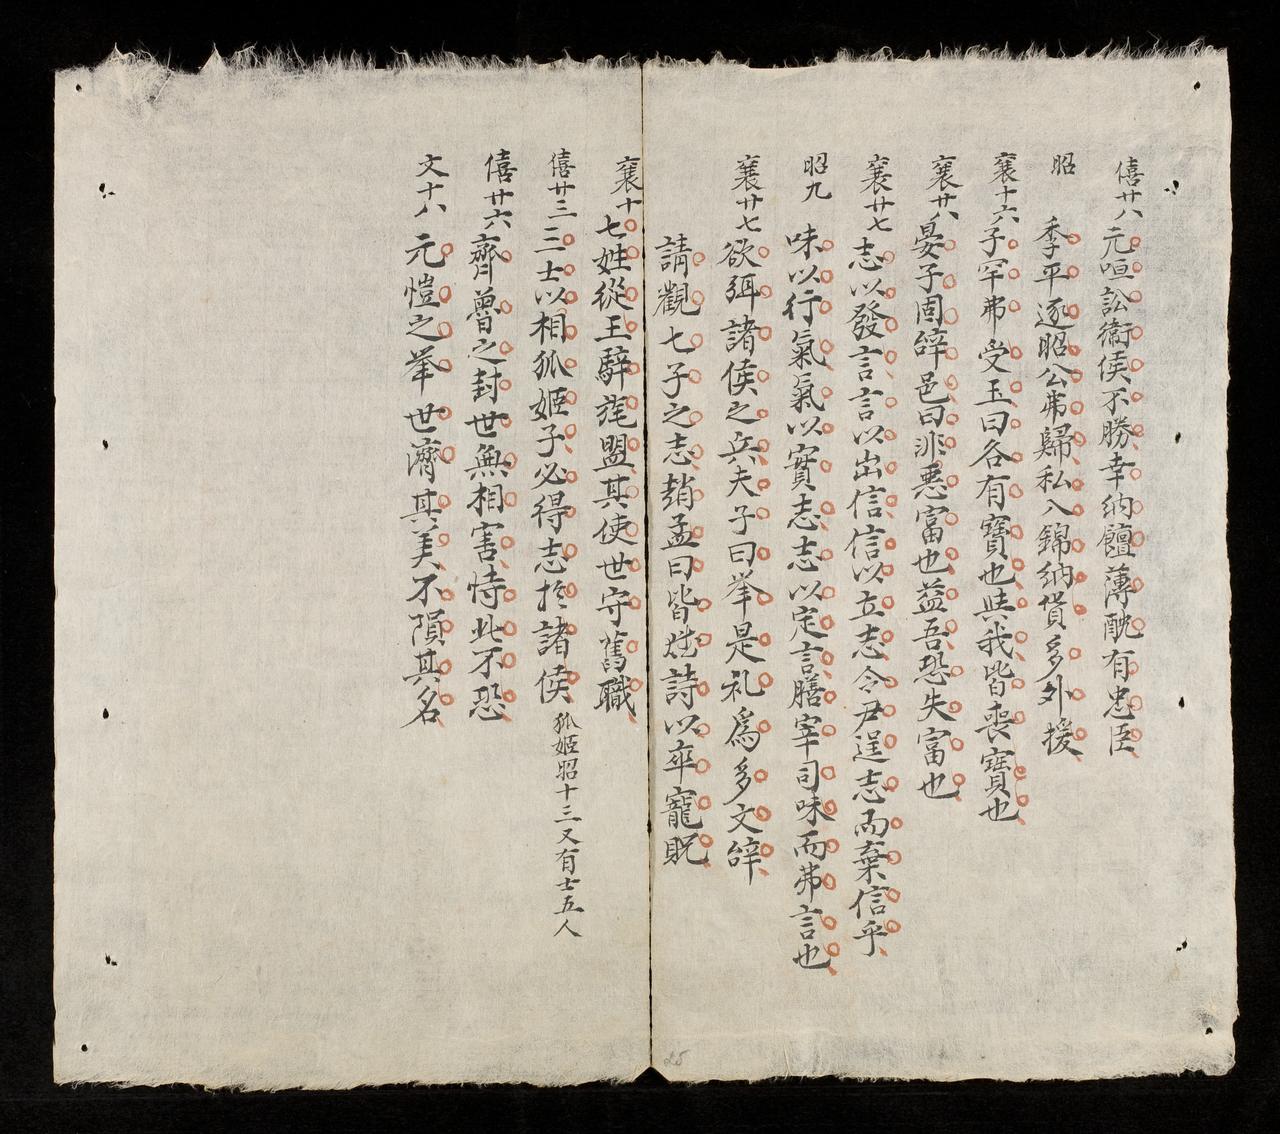 僖廿八 元咺訟衛侯不勝幸納饘薄酖有忠臣
昭 季平逐昭公弗歸私入錦納貨多外援
襄十六 子罕弗受玉曰各有寶也與我皆喪寶也
襄廿八 晏子固辝邑曰非惡富也益吾恐失富也
襄廿七 志以發言言以出信信以立志令尹逞志而棄信乎
昭九 味以行氣氣以實志志以定言膳宰司味而弗言也
襄廿七 欲弭諸侯之兵夫子曰举是礼為多文辝
請觀七子之志趙孟曰皆賦詩以卒寵貺
襄十 七姓從王騂旄盟其使世守舊職
僖廿三 三士以相狐姬子必得志於諸侯 狐姬昭十三又有士五人
僖廿六 齊魯之封世無相害恃此不恐
文十八 元愷之举世濟其美不隕其名
25